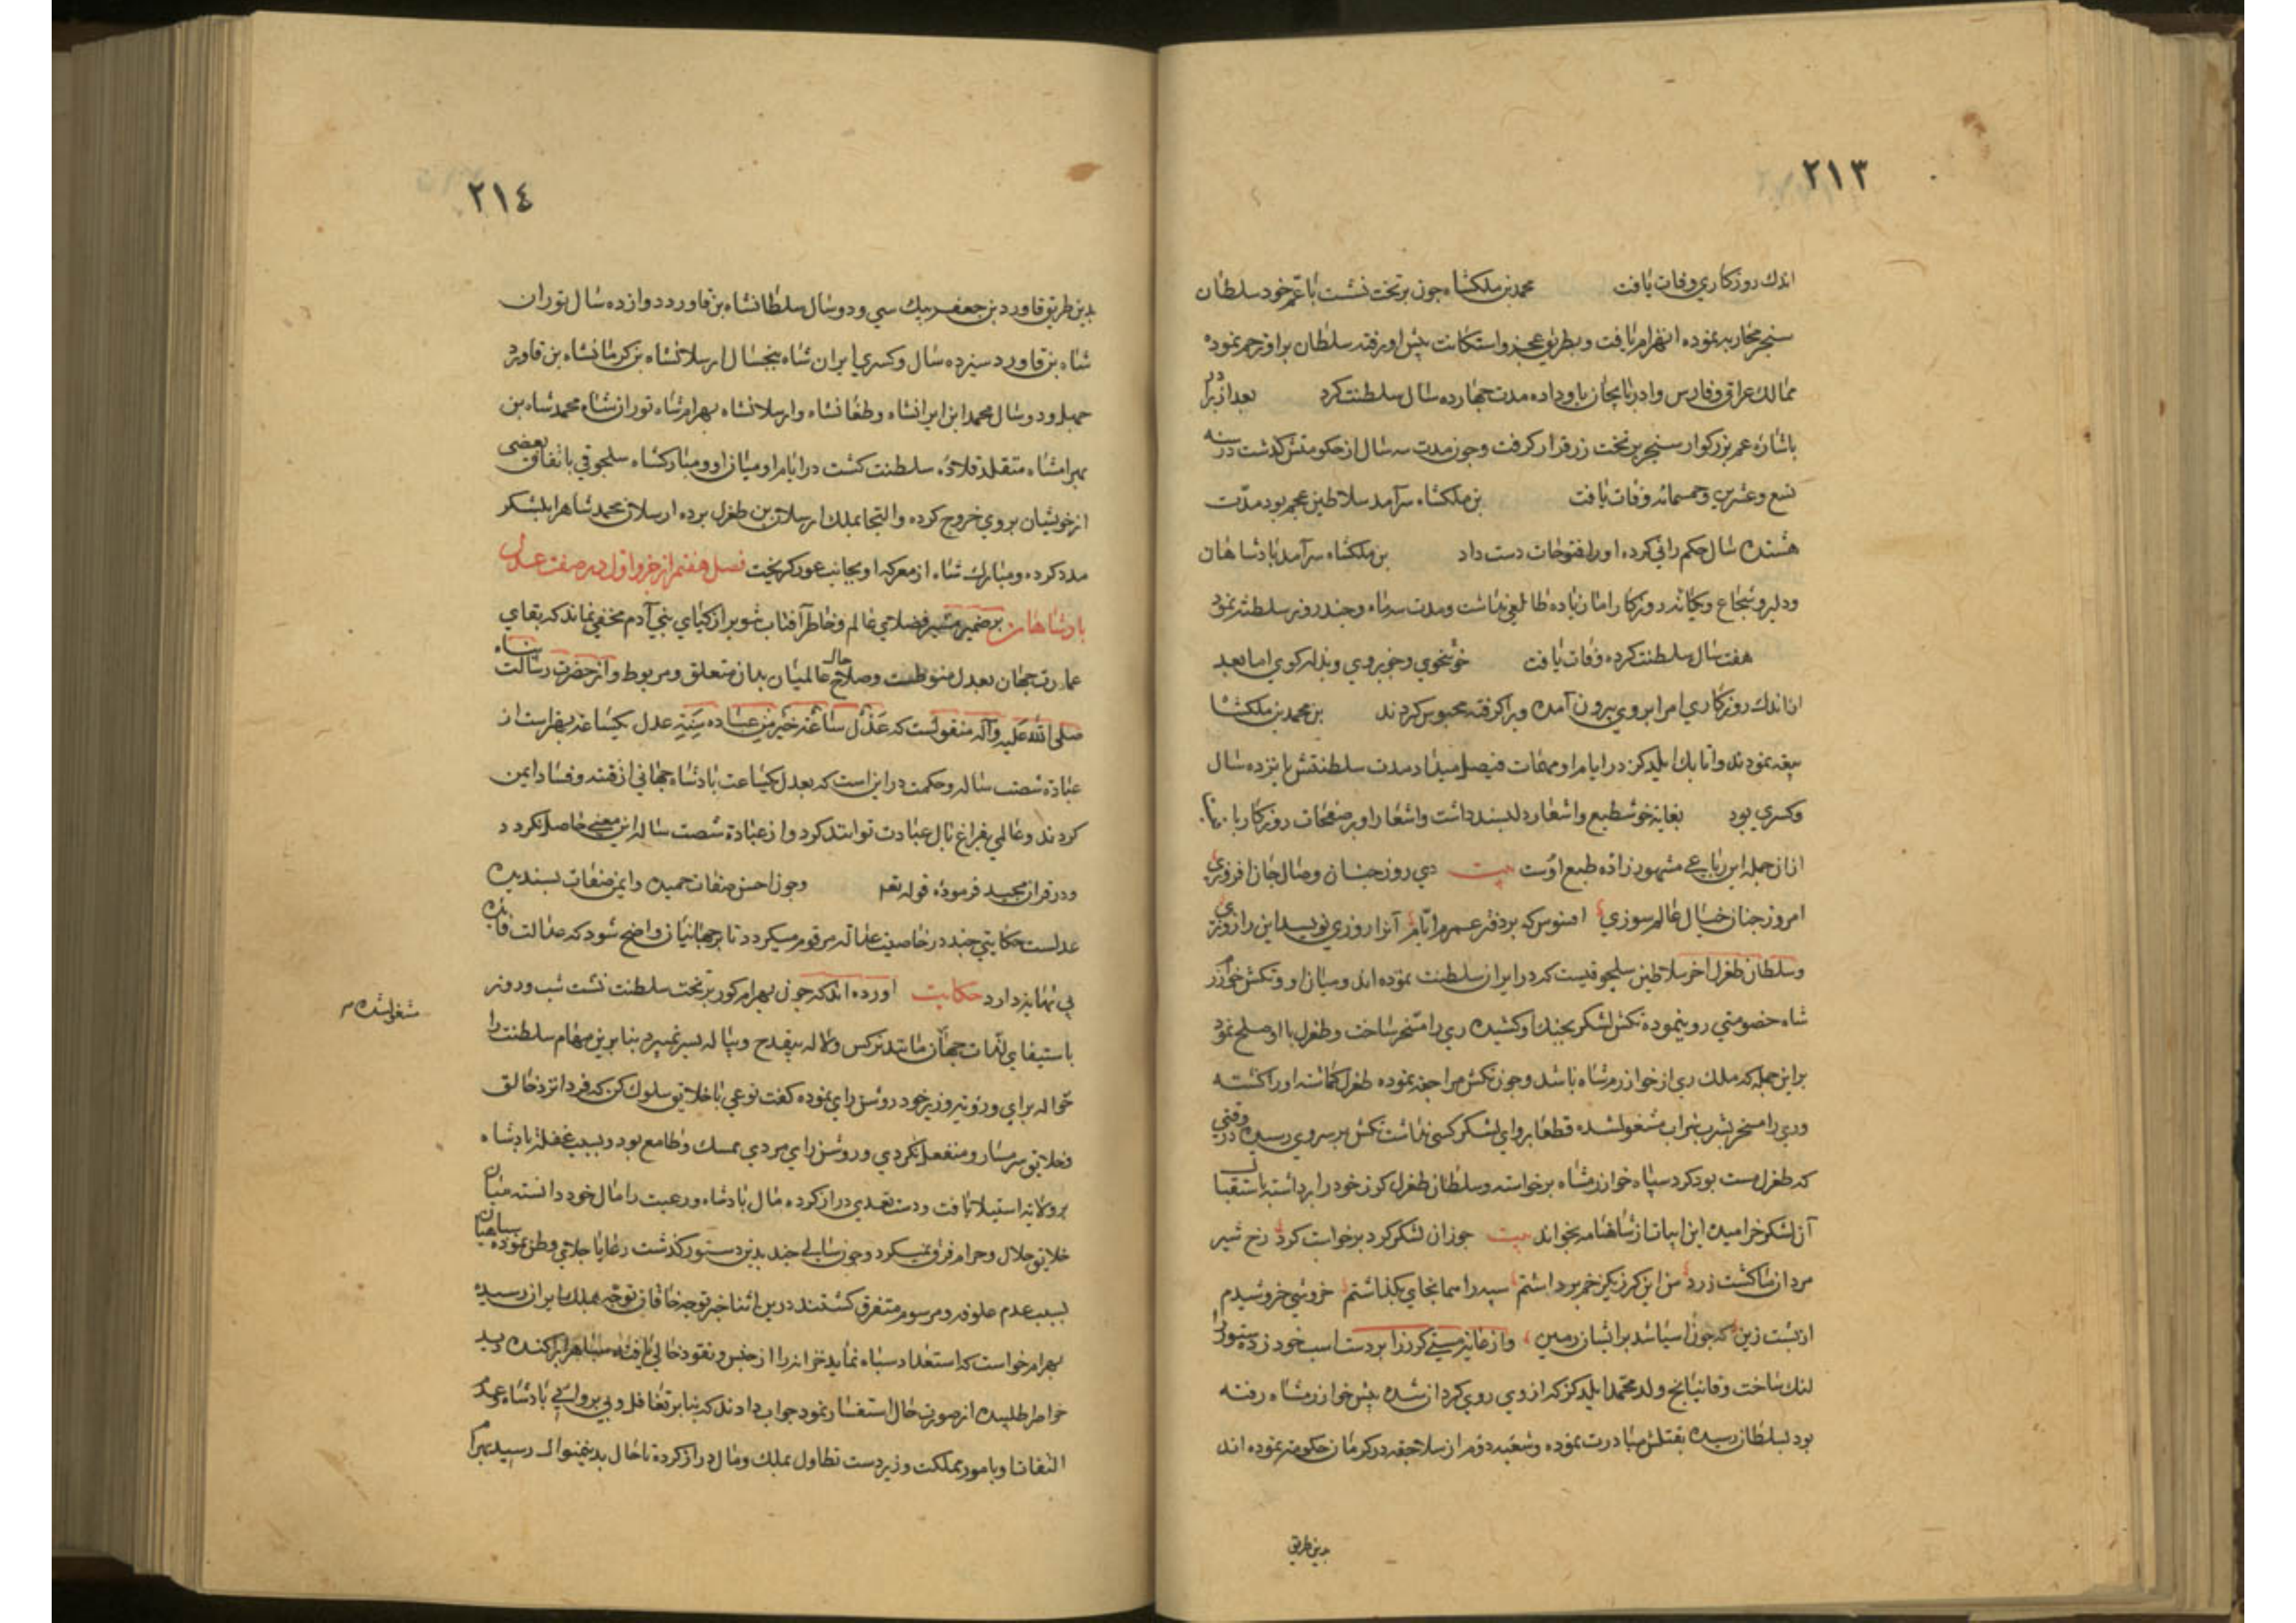 ٢١٣
اندك روزكاري وفات يافت محمد بن ملكشاه جون بر تخت نشست با عم خود سلطان
سنجر محاربه نموده انهزام يافت وبطريق عجز واستكانت پيش او رفته سلطان بر او ترحم نموده
ممالك عراق وفارس وادربايجان باو داده مدت چهارده سال سلطنت كرد بعد از برادر
باشاره عم بزركوار سنجر بر تخت زر قرار كرفت وجون مدت سه سال از حكومتش كذشت در سنه
تسع وعشرين وخمسمائه وفات يافت بن ملكشاه سرآمد سلاطين عجم بود مدّت
هشتده سال حكم راني كرده او را فتوحات دست داد بن ملكشاه سرآمد پادشاهان
ودلير وشجاع ويكانه روزكار اما زياده طالعي نداشت ومدت سه ماه وچند روز سلطنت نمود
هفت سال سلطنت كرده وفات يافت خوشخوي وخوبروي وبذله كوي اما بعد
از اندك روزكاري امرا بر وي بيرون آمده ويرا كرفته محبوس كردند بن محمد بن ملكشا
بيعه نمودند واتابك ايلدكز در ايام او مهمات فيصل ميداد مدت سلطنتش پانزده سال
وكسري بود بغايه خوشطبع واشعار دلپسند داشت واشعار او بر صفحات روزكار با
از ان جمله اين رباعي مشهور زاده طبع اوست بيت دي روز چنان وصال جان افروزي
امروز چنان خيال عالم سوزي افسوس كه بر دفتر عمرم ايّام آنرا روزي نويسد اين را روزي
وسلطان طغرل آخر سلاطين سلجوقيست كه در ايران سلطنت نموده اند وميان او وتكش خوارزم
شاه خصومتي روي نموده تكش لشكر بجنك او كشيده ري را مسخر ساخت وطغرل با او صلح نمود
بر اين جمله كه ملك ري از خوارزمشاه باشد وجون تكش مراجعه نموده طغرل كماشته او را كشته
وري را مسخر بشرب شراب مشغول شده قطعا پرواي لشكر كسي نداشت تكش بر سر وي رسيده در وقتي
كه طغرل مست بود كرد سپاه خوارزمشاه برخواسته وسلطان طغرل كرز خود را برداشته باستقبال
آن لشكر خراميده اين ابيات از شاهنامه بخواند بيت چو زان لشكر كرد برخواست كرد رخ شير
مردان ما كشت زرد من اين كرز يكزخم برداشتم سپه را همانجاي بكذاشتم خروشي خروشيدم
از پشت زين كه چون آسيا شد بر ايشان زمين واز غايه مستي كرز را بر دست اسب خود زده ستور را
لنك ساخت وقاتيانج ولد محمد ايلدكز كه از وي روي كردان شده پيش خوارزمشاه رفته
بود بسلطان رسيده بقتلش مبادرت نموده وشعبه دوم از سلاجقه در كرمان حكومه نموده اند
بدين طريق
٢١٤
بدين طريق قاورد بن جعفر بيك سي ودو سال سلطانشاه بن قاورد دوازده سال توران
شاه بن قاورد سيزده سال وكسري ايران شاه پنجسال ارسلانشاه بن كرمانشاه بن قاورد
چهل ودو سال محمد ابن ايرانشاه وطغانشاه وارسلانشاه بهرامشاه توران شاه محمد شاه بن
بهرامشاه متقلد قلاده سلطنت كشت در ايام او ميان او ومباركشاه سلجوقي باتفاق بعضي
از خويشان بر وي خروج كرده والتجا بملك ارسلان بن طغرل برده ارسلان محمد شاه را بلشكر
مدد كرده ومبارك شاه از معركه او بجانب غور كريخت فصل هفتم از جزو اول در صفت عدل
پادشاهان بر ضمير منير فضلاي عالم وخاطر آفتاب تنوير ازكياي بني آدم مخفي نماند كه بقاي
عمارت جهان بعدل منوطست وصلاح حال عالميان بدان متعلق ومربوط واز حضرت رسالت پناه
صلى الله عليه وآله منقولست كه عَدْلُ سَاعَةٍ خَيْرٌ مِنْ عِبَاده سَنَةٍ عدل يكساعه بهتر است از
عبادة شصت ساله وحكمت در اين است كه بعدل يكساعت پادشاه جهاني از فتنه وفساد ايمن
كردند وعالمي بفراغ بال عبادت توانند كرد واز عبادة شصت ساله اين معني حاصل نكردد
ودر قران مجيد فرموده قوله تعه وچون احسن صفات حميده وايمن صفات پسنديده
عدلست حكايتي چند در خاصيت عدالة مرقوم ميكردد تا بر جهانيان واضح شود كه عدالت فايده
بي نهايه دارد حكايت آورده اند كه چون بهرام كور بر تخت سلطنت نشست شب وروز
باستيفاي لذّات جهان مانند نركس ولاله بيقدح وپياله بسر نميبرد بنا برين مهام سلطنت را
مشغولشده
حواله براي ورويه وزير خود روشن راي نموده كفت نوعي با خلايق سلوك كن كه فردا نزد خالق
وخلايق شرمسار ومنفعل نكردي وروشن راي مردي ممسك وطامع بود وبسبب غفلة پادشاه
بر ولايه استيلا يافت ودست تعدي دراز كرده مال پادشاه ورعيت را مال خود دانسته ميان
خلايق حلال وحرام فرق نميكرد وچون سالي چند بدين دستور كذشت رعايا جلاي وطن نموده سپاهيان
بسبب عدم علوفه ومرسوم متفرق كشتند درين اثنا خبر توجه خاقان بملك ايران رسيده
بهرام خواست كه استعداد سپاه نمايد خزانه را از جنس ونقود خالي يافته سپاه را پراكنده ديد
خواص را طلبيده از صورت حال استفسار نمود جواب دادند كه بنا بر تغافل وبي پروائي پادشاه وعدم
التفات او بامور مملكت وزير دست تطاول بملك ومال دراز كرده تا حال بدينمنوال رسيد بهرام